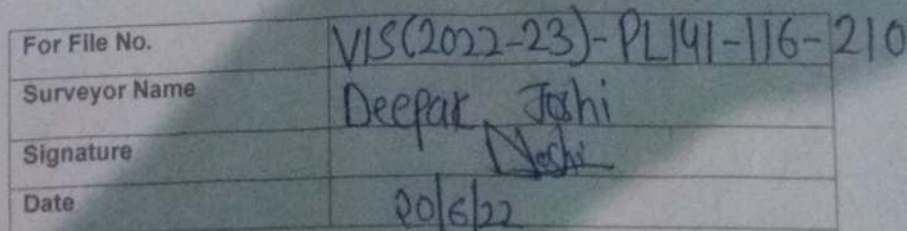 For File No. VIS(2022-23)-PL141-116-210
Surveyor Name Deepak Joshi
Signature Joshi
Date 20/6/22